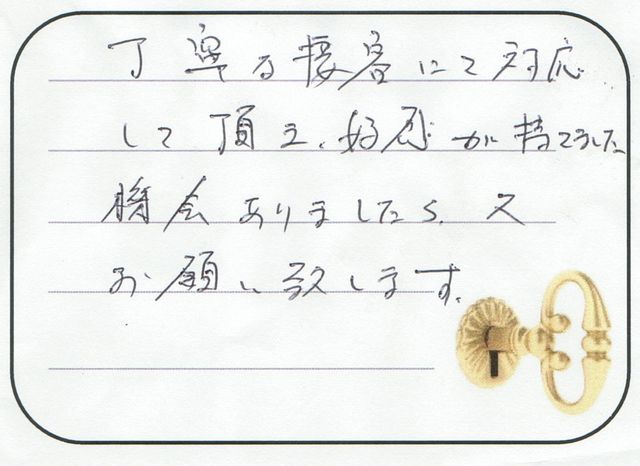 丁寧な接客にて対応
して頂き、好感が持てました
機会ありましたら、又
お願い致します。